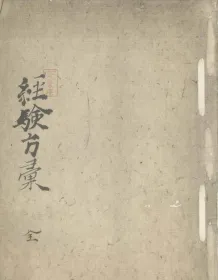 經驗方彙
全